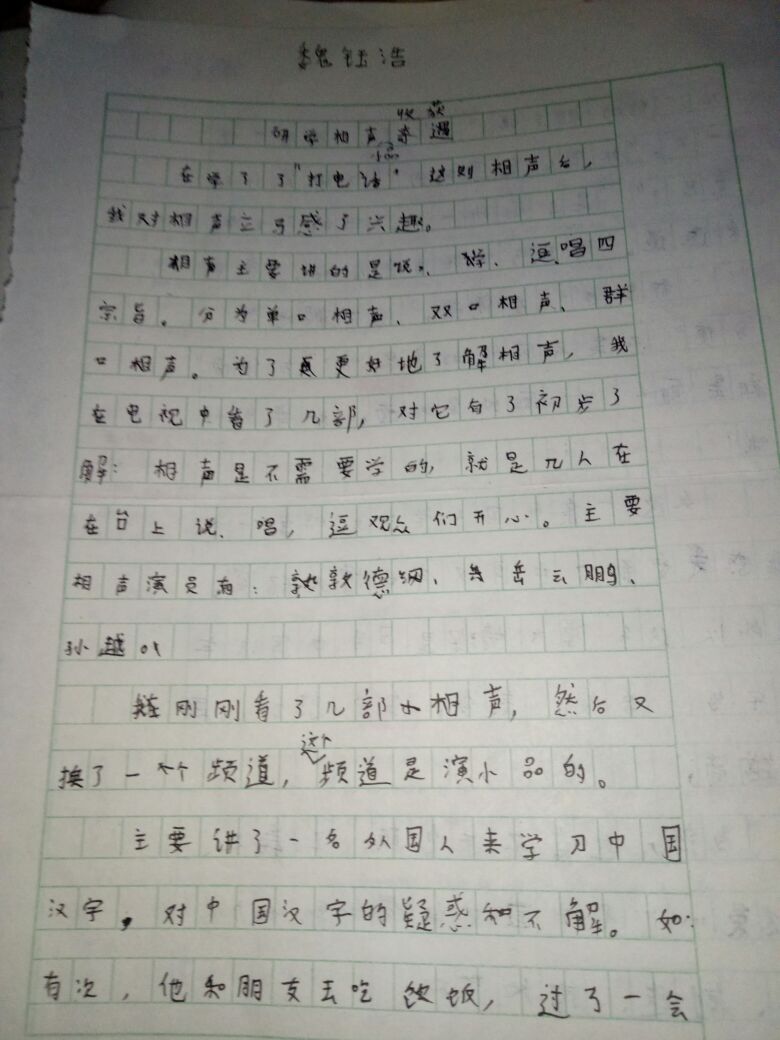 魏钰浩
收获
研学相声
小品
在学了了"打电话"这则相声后,
我对相声立马感了兴趣。
相声主要讲的是说、学、逗、唱四
宗旨。分为单口相声、双口相声、群
口相声。为了更好地了解相声,我
在电视中看了几部,对它有了初步了
解:相声是不需要学的,就是几人在
在台上说、唱,逗观众们开心。主要
相声演员有:郭德纲、岳云鹏、
孙越
刚刚看了几部相声,然后又
换了一个频道,这个频道是演小品的。
主要讲了一名外国人来学习中国
汉字,对中国汉字的疑惑和不解。如:
有次,他和朋友去吃饭,过了一会